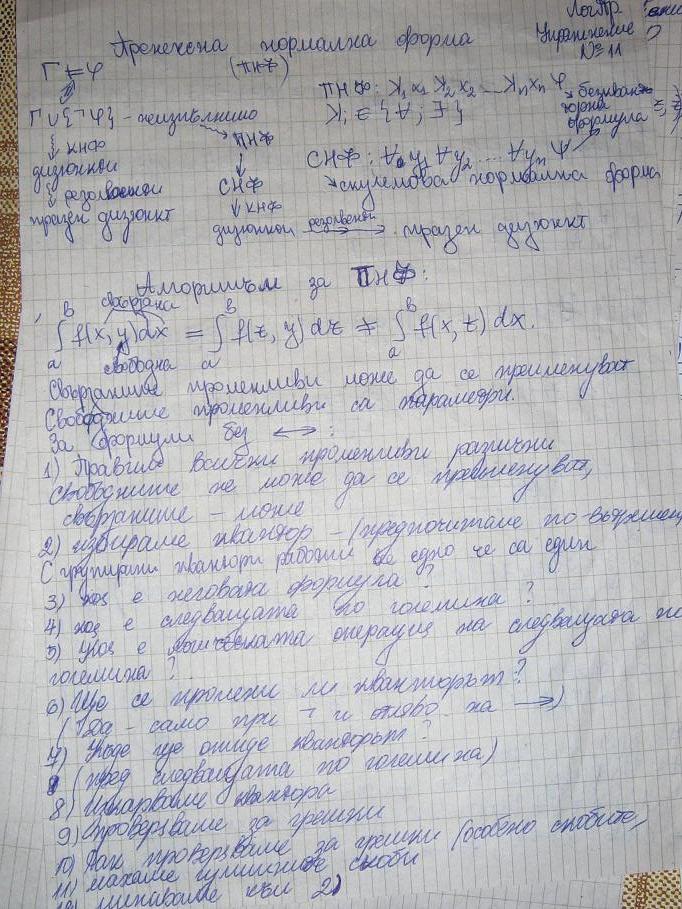 ЛогПр.
Упражнение
№ 11
Пренексна нормална форма
(ПНФ)
Γ ⊨ φ
ПНФ: K₁x₁ K₂x₂ ... Kₙxₙ Ψ
безкван-
торна
формула
Kᵢ ∋ {∀; ∃}
Γ∪{¬φ} - неизпълнимо
↓ КНФ
ПНФ
дизюнкти
СНФ: ∀y₁ ∀y₂ .... ∀yₙ Ψ
↓ резолвенти
СНФ
скулемова нормална форма
празен дизюнкт
↓ КНФ
дизюнкти резолвенти → празен дизюнкт
Алгоритъм за ПНФ:
свързана
∫ₐᵇ f(x, y)dx = ∫ₐᵇ f(z, y)dz ≠ ∫ₐᵇ f(x, z)dx.
свободна
Свързаните променливи може да се преименуват
Свободните променливи са параметри.
За формули без ↔:
1) Правим всички променливи различни
свободните не може да се преименуват,
свързаните - може
2) избираме квантор - (предпочитаме по-вътрешен)
С групирани квантори работим все едно че са един
3) коя е неговата формула?
4) коя е следващата по големина?
5) Коя е логическата операция на следващата по
големина?
6) Ще се промени ли кванторът?
(Да - само при ¬ и отляво на →)
7) Къде ще отиде кванторът?
(пред следващата по големина)
8) Изкарваме квантора
9) проверяваме за грешки
10) Пак проверяваме за грешки (особено скобите,
11) махаме излишните скоби
12) минаваме към 2)